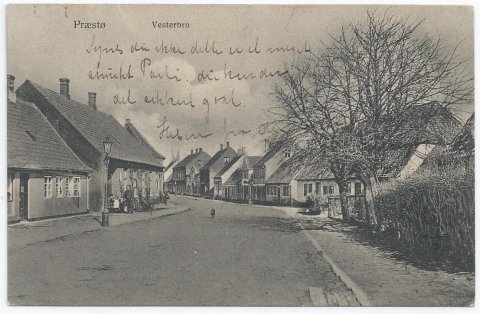 Præstø Vesterbro
Synes du ikke dette er et meget
smukt Parti. du kender
det
Hilsen fra